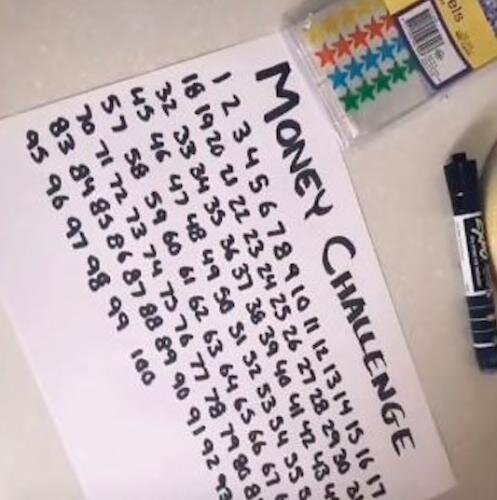 MONEY CHALLENGE
1 2 3 4 5 6 7 8 9 10 11 12 13 14 15 16 17
18 19 20 21 22 23 24 25 26 27 28 29 30
32 33 34 35 36 37 38 39 40 41 42 43
45 46 47 48 49 50 51 52 53 54 55
57 58 59 60 61 62 63 64 65 66 67
70 71 72 73 74 75 76 77 78 79 80
83 84 85 86 87 88 89 90 91 92
95 96 97 98 99
100
els
EXPO